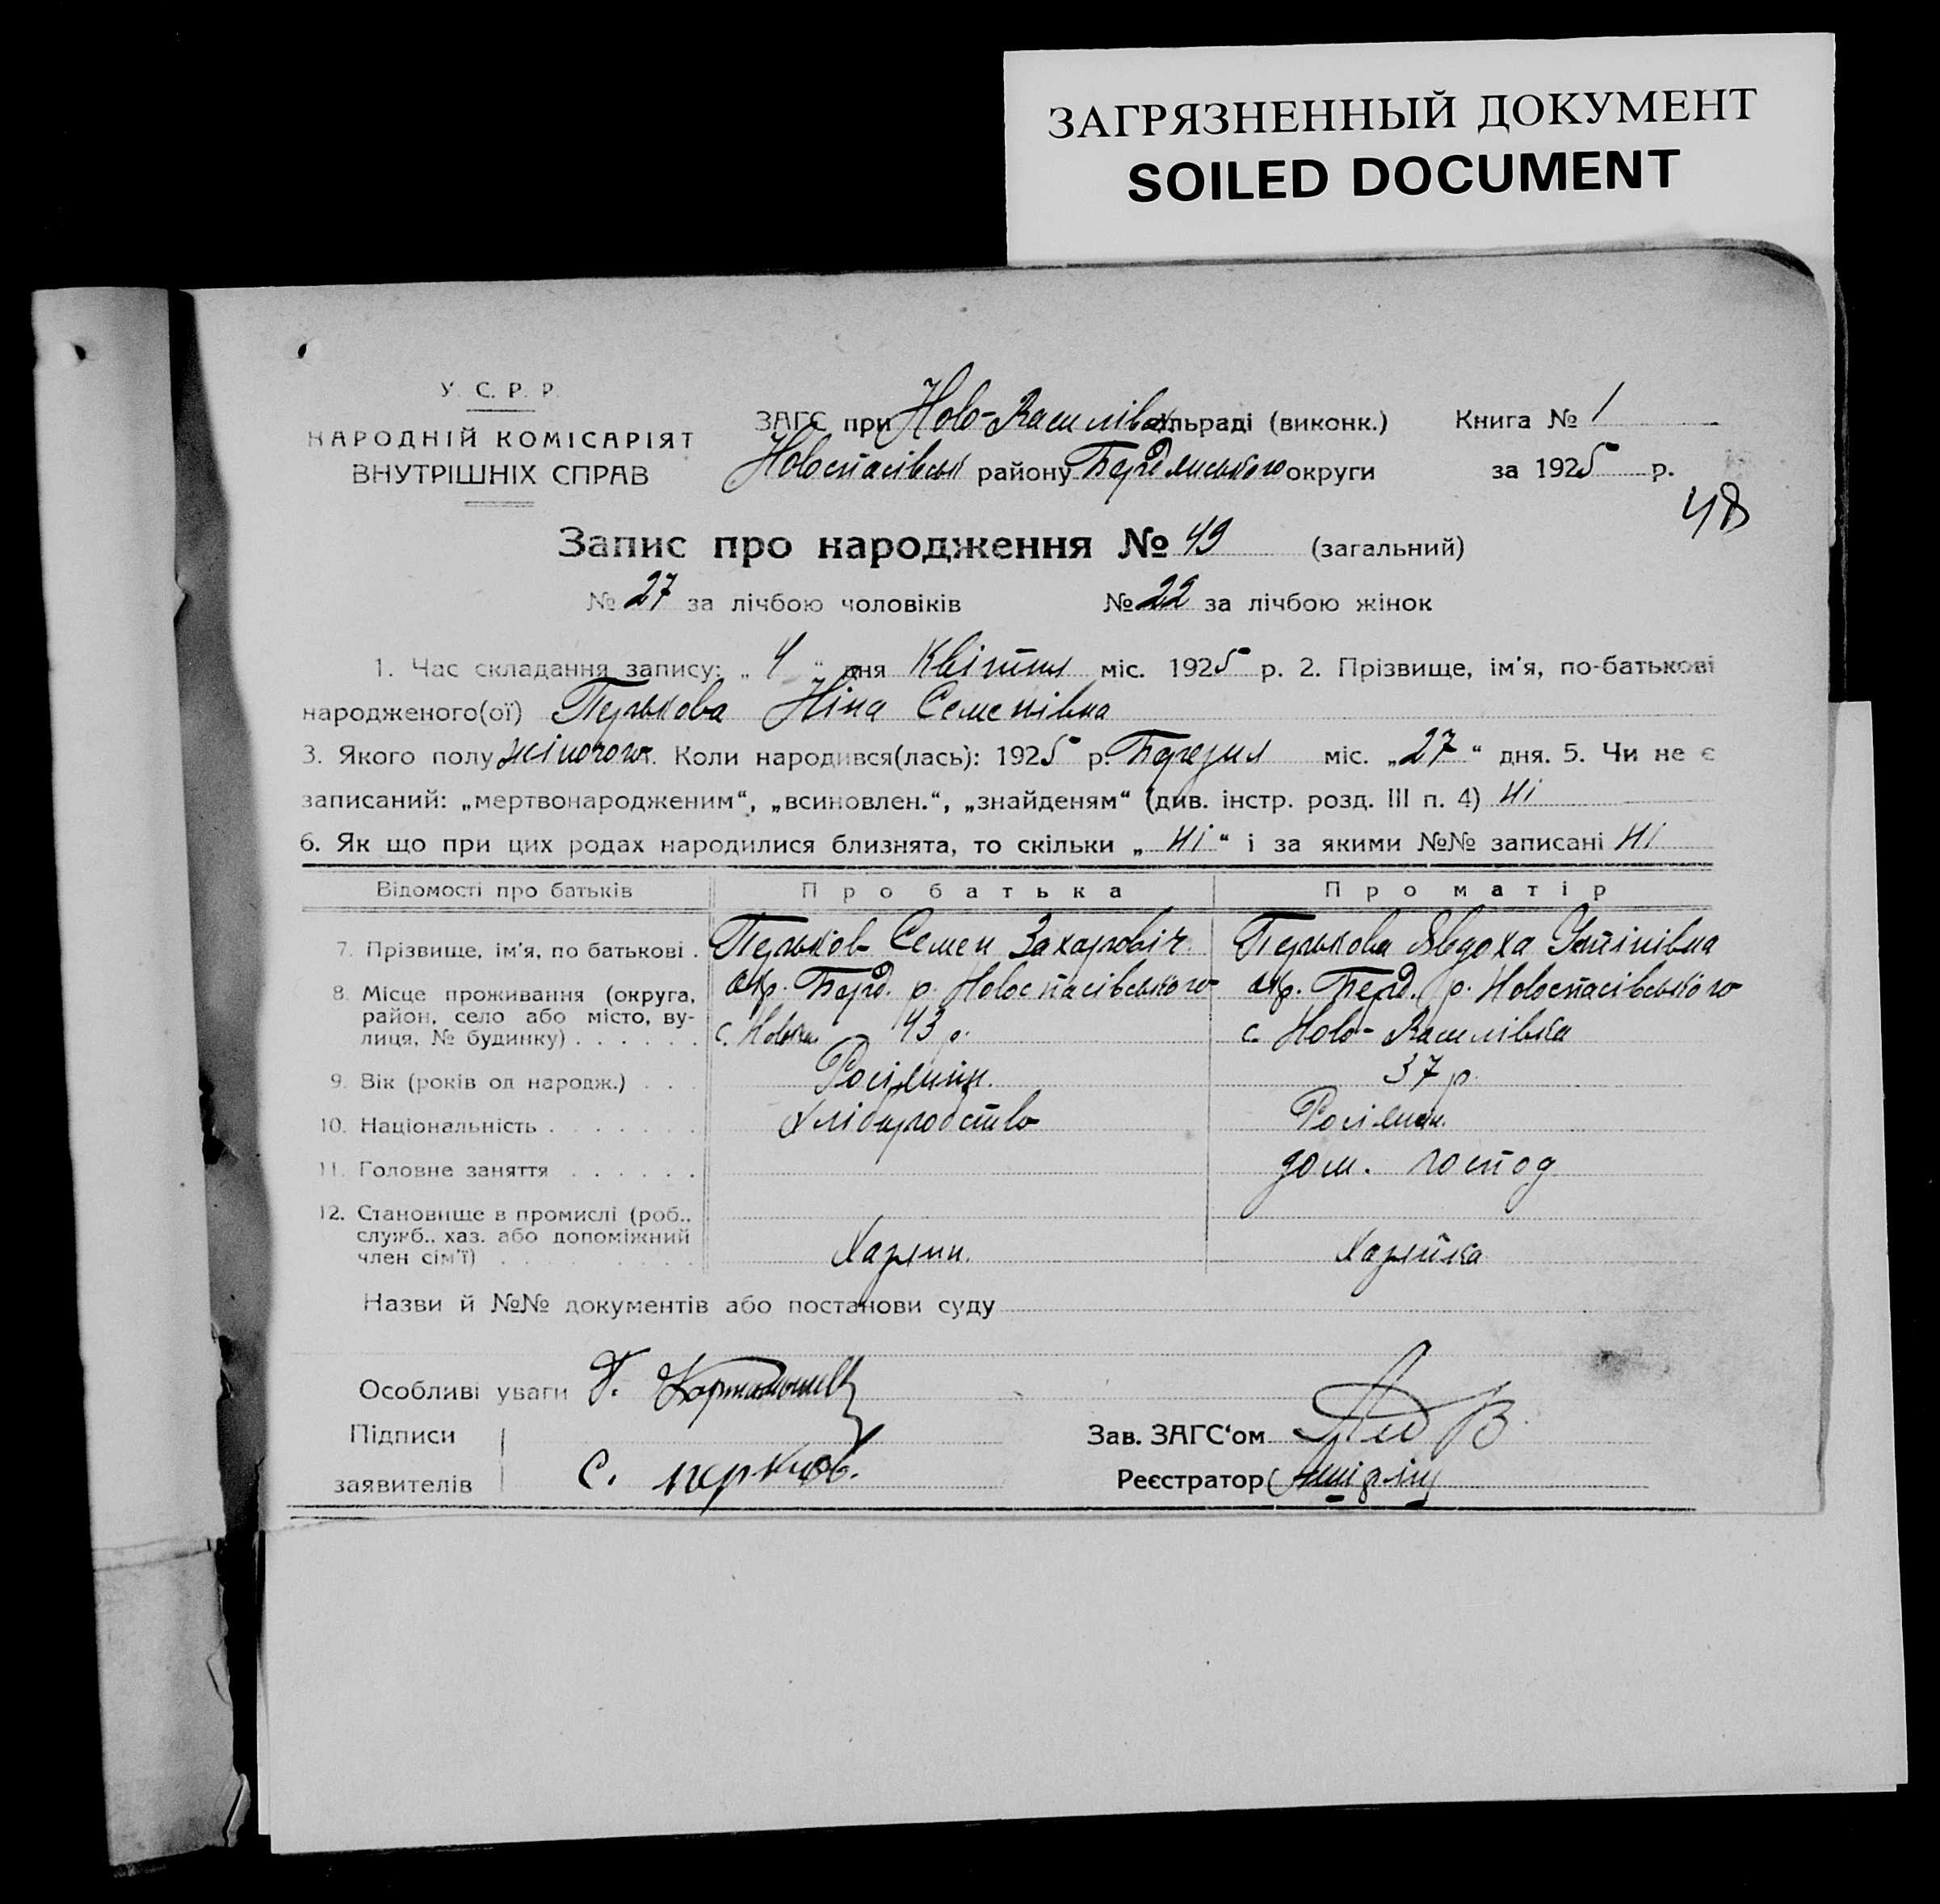 ЗАГРЯЗНЕННЫЙ ДОКУМЕНТ
SOILED DOCUMENT
У. С. Р. Р.
НАРОДНІЙ КОМІСАРІЯТ
ВНУТРІШНІХ СПРАВ
ЗАГС при Ново-Василівск сільраді (виконк.) Книга № 1
Новоспасівськ району Бердянського округи за 1925 р.
48
Запис про народження № 49 (загальний)
№ 27 за лічбою чоловіків № 22 за лічбою жінок
1. Час складання запису: „ 4 “ дня Квітня міс. 1925 р. 2. Прізвище, ім’я, по-батькові
народженого(ої) Перькова Ніна Семенівна
3. Якого полу жіночого 4. Коли народився(лась): 1925 р. Березня міс. „27“ дня. 5. Чи не є
записаний: „мертвонародженим“, „всиновлен.“, „знайденям“ (див. інстр. розд. III п. 4) ні
6. Як що при цих родах народилися близнята, то скільки „ ні “ і за якими №№ записані ні
Відомості про батьків Про батька Про матір
7. Прізвище, ім’я, по батькові . Перьков Семен Захаровіч Перькова Явдоха
8. Місце проживання (округа, район, село або місто, вулиця, № будинку) . . . . . . окр. Берд. р. Новоспасівського окр. Берд. р. Новоспасівського
с. 43 р. с. Ново-Василівка
9. Вік (років од народж.) . . . Росіянин. 37 р.
10. Національність . . . . . . . хліборобство Росіянк.
11. Головне заняття . . . . . . дом. господ
12. Становище в промислі (роб., служб., хаз. або допоміжний член сім’ї) . . . . . . . . . Хазяин. Хазяйка
Назви й №№ документів або постанови суду
Особливі уваги
Підписи
заявителів С. перьков.
Зав. ЗАГС‘ом
Реєстратор